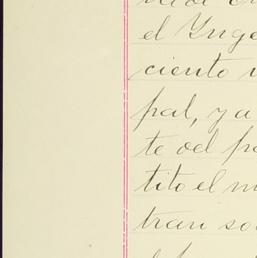 el Inge
ciento
pal, y a
te del p
tito el m
tran so